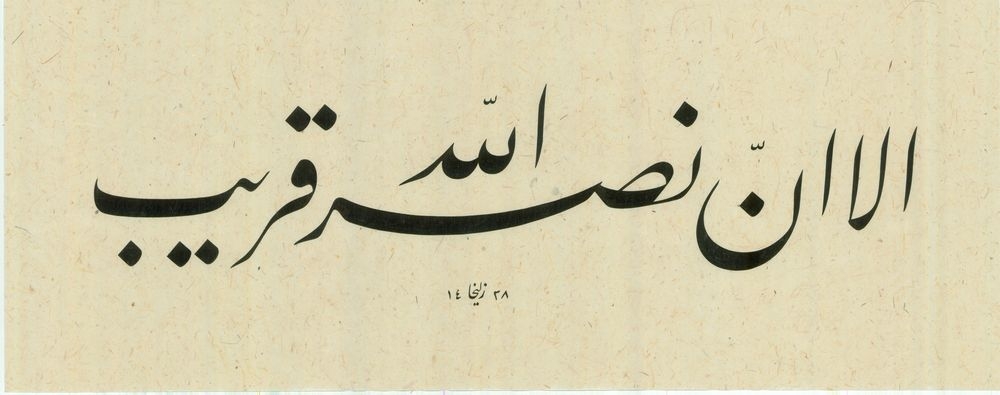 الا ان نصر اللّه قریب
۲۸ زلیخا ١٤